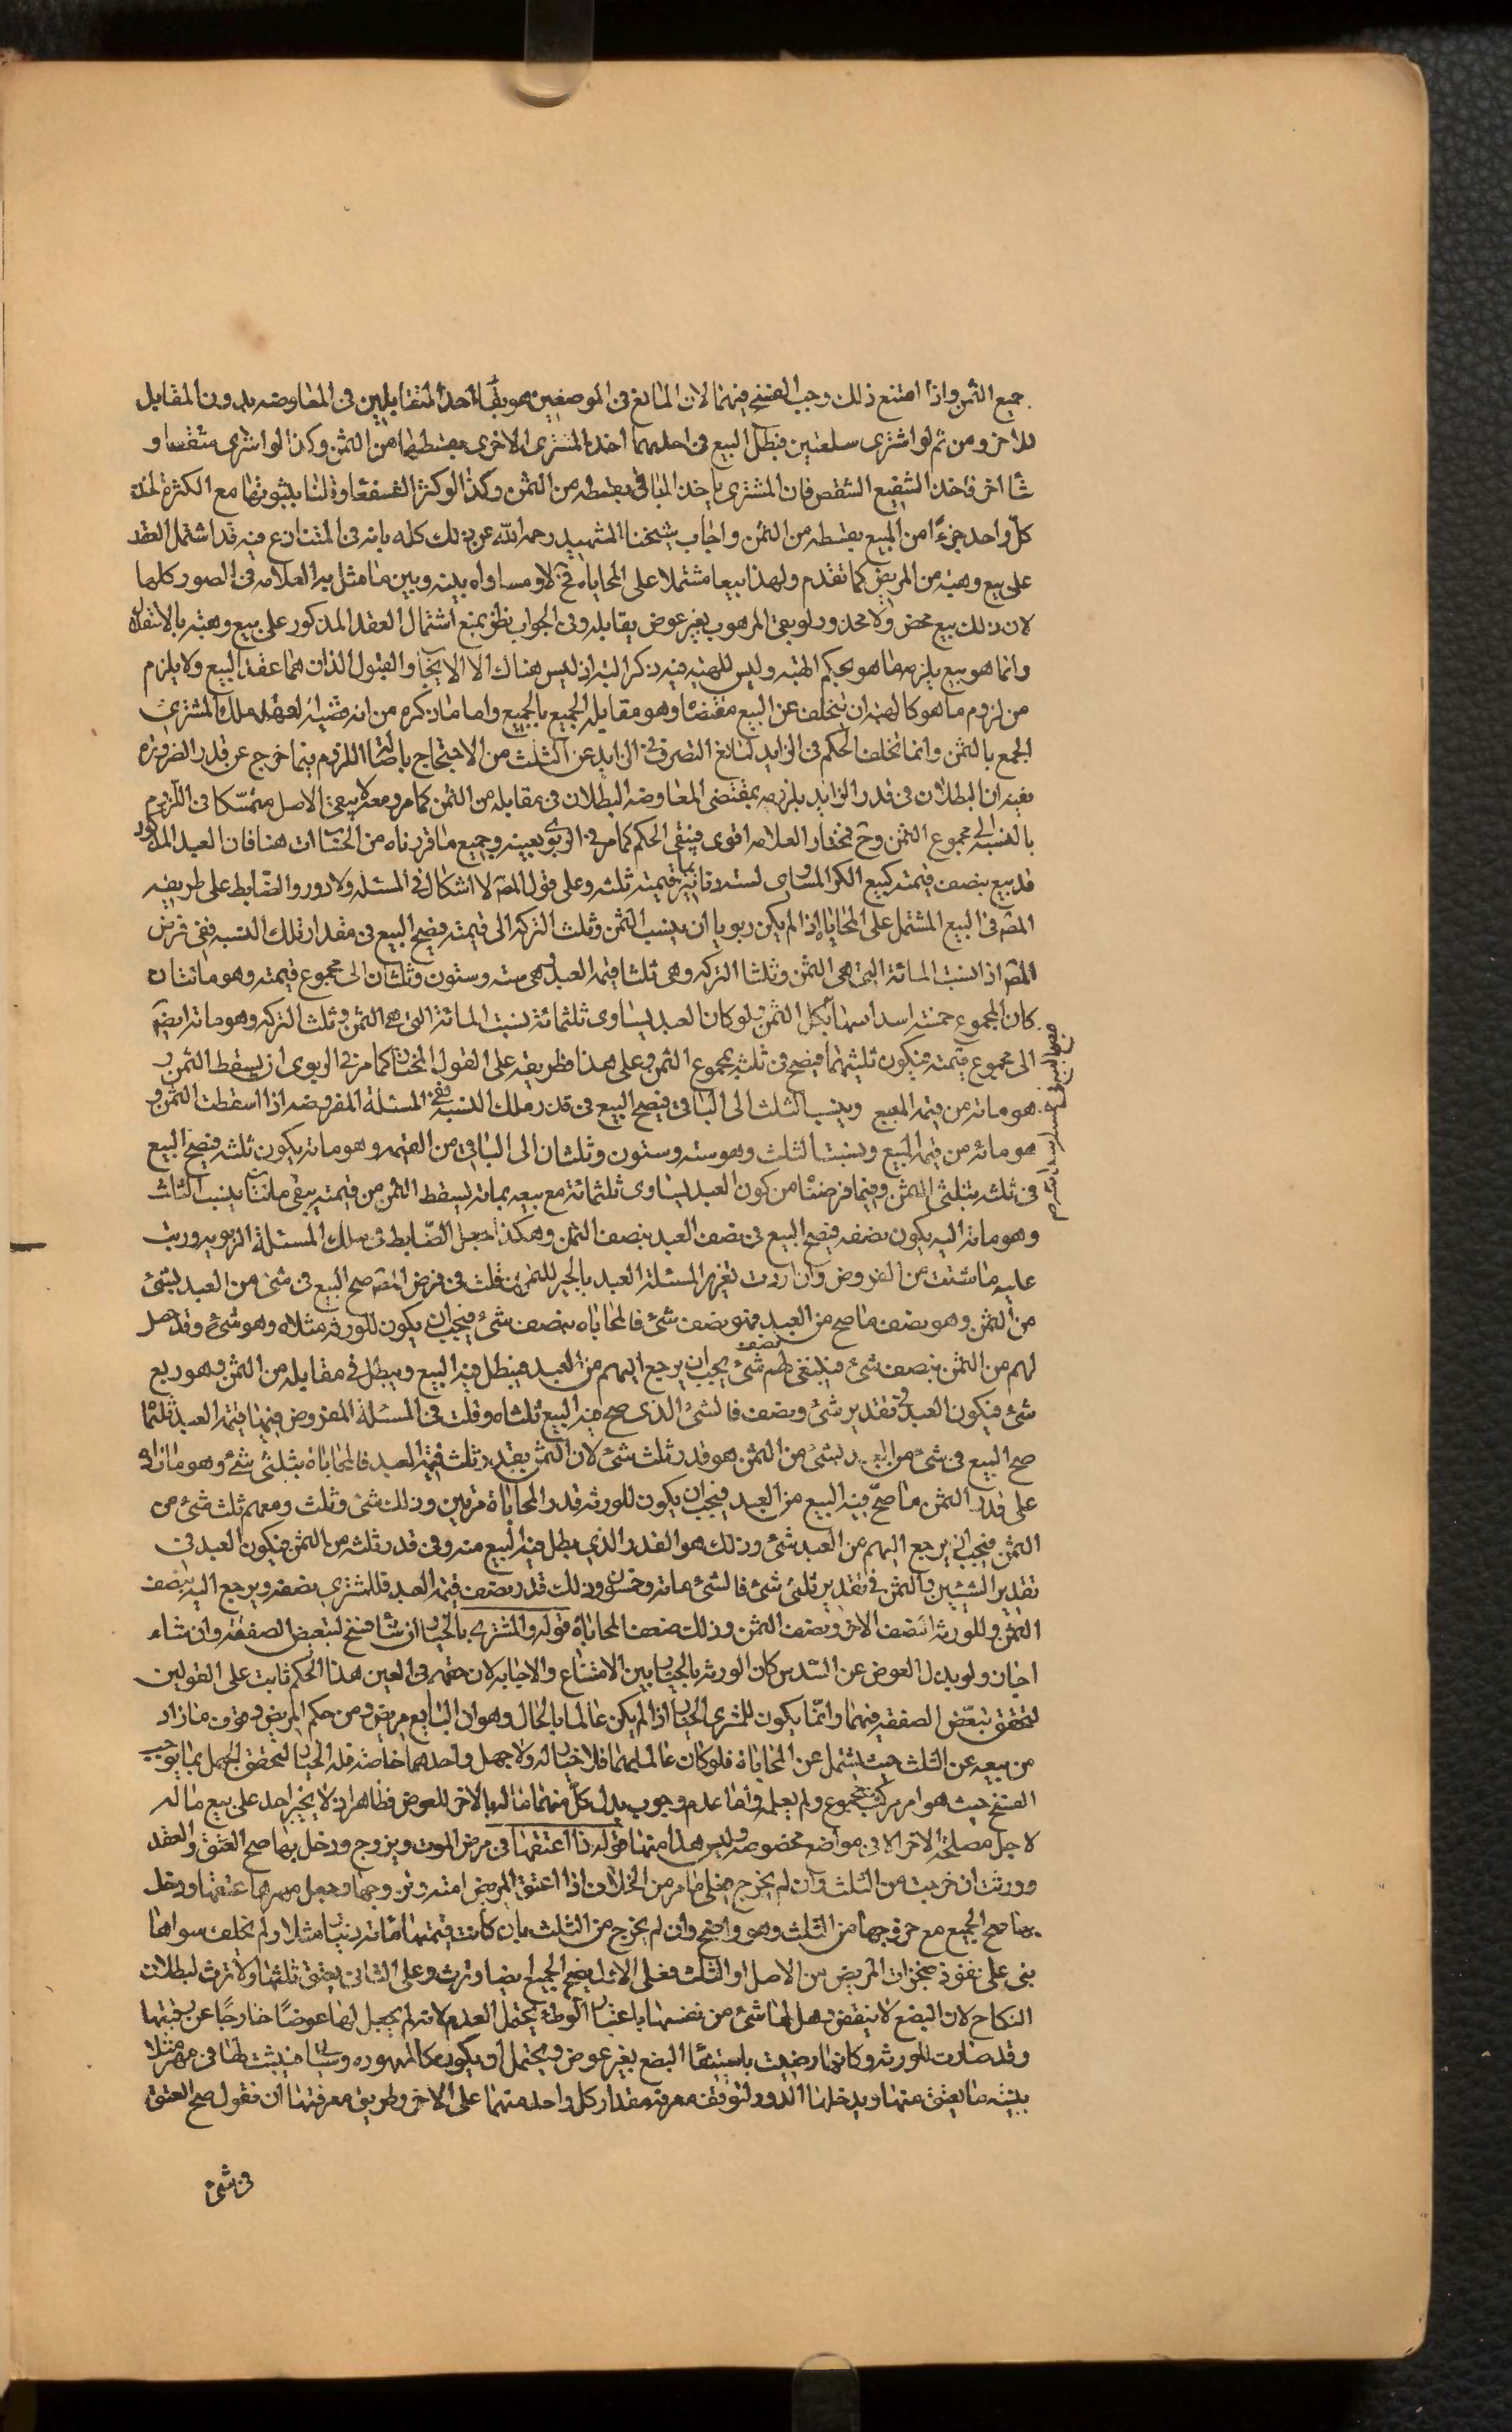 جميع الثمن واذا امتنع ذلك وجب الفسخ فيهما لان المانع في الموضعين هو بقاء احد المتقابلين في المعاوضه بدون المقابل
للاخر ومن ثم لو اشترى سلعتين فبطل البيع في احدهما اخذ المشترى الاخرى بقسطها من الثمن وكذا لو اشترى شقصا و
شا اخر فاخذ الشفيع الشقص فان المشترى ياخذ الباقى بقسطه من الثمن وكذا لو كثر الشفعا وقلنا بثبوتها مع الكثرة لاخذ
كل واحد جزءًا من المبيع بقسطه من الثمن واجاب شيخنا الشهيد رحمه الله عن ذلك كله بانه في المتنازع فيه قد اشتمل العقد
على بيع وهبه من المريض كما تقدم ولهذا بيعا مشتملا على المحاباه فح لا ومساواه بينه وبين ما مثل به العلامه في الصور كلها
لان ذلك بيع محض ولا محذور لو بقى الموهوب بغير عوض يقابله وفى الجواب نظر بمنع اشتمال العقد المذكور على بيع وهبه بالاستقلال
وانما هو بيع يلزمه ما هو بحكم الهبه وليس للهبه فيه ذكر البته اذ ليس هناك الا الايجاب والقبول الذان هما عقد البيع ولا يلزم
من لزوم ما هو كالهبه ان يتخلف عن البيع مقتضاه وهو مقابله الجميع بالجميع واما ما ذكره من انه ملك المشترى
الجمع بالثمن وانما تخلف الحكم في الزايد لمانع التصرف في الزايد عن الثلث من الاحتجاج باصاله اللزوم فيما خرج عن قدر الضروره
ففيه ان البطلان في قدر الزايد يلزمه بمقتضى المعاوضه البطلان في مقابله من الثمن كما مر ومعه لا يبقى الاصل متمسّكا في اللزوم
بالنسبه الى مجموع الثمن وح فمختار العلامه اقوى فيبقى الحكم كما مر في الربوى بعينه وجميع ما قررناه من الحسابات هنا فان العبد المذكور
قد بيع بنصف قيمته كبيع الكر المساوى لسته دنانير بما قيمته ثلثه وعلى قول المصه لا اشكال في المسئله ولا دور والضابط على طريقه
المصه في البيع المشتمل على المحاباه اذا لم يكن ربويا ان ينسب الثمن وثلث التركه الى قيمته فيصح البيع في مقدار تلك النسبه ففى فرض
المصه اذا نسبت المائه التى هى الثمن وثلث التركه وهى ثلثا قيمه العبد وهى سته وستون وثلثان الى مجموع قيمته وهو مائتان
كان المجموع خمسه اسداسها بكل الثمن ولو كان العبد يساوى ثلثمائه نسبت المائه التى هى الثمن وثلث التركه وهو مائه ايضا
الى مجموع قيمته فيكون ثلثيهما فيصح في ثلثيه بمجموع الثمن وعلى هذا وطريقه على القول المختار كما مر في الربوى ان يسقط الثمن و
هو مائه من قيمه المبيع وينسب الثلث الى الباقى فيصح البيع في قدر تلك النسبه ففى المسئله المفروضه اذا اسقطت الثمن و
هو مائه من قيمه المبيع ونسبت الثلث وهو سته وستون وثلثان الى الباقى من القيمه وهو مائه يكون ثلثيه فيصح البيع
في ثلثيه بثلثى الثمن وفيما فرضناه من كون العبد يساوى ثلثمائه مع بيعه بمائه يسقط الثمن من قيمته يبقى مائتان ينسب الثلث
وهو مائه اليه يكون نصفه فيصح البيع في نصف العبد بنصف الثمن وهكذا جعل الضابط في تلك المسئله الربويه ورتب
عليه ما شئت من الفروض وان اردت تقرير المسئله العبد بالجبر قلت في فرض المصه صح البيع في شئ من العبد بشئ
من الثمن وهو نصف ما صح من العبد فهو نصف شئ فالمحاباه بنصف شئ فيجب ان يكون للورثه مثلاه وهو شئ وقد حصل
لهم من الثمن نصف شئ فيبقى لهم نصف شئ يجب ان يرجع اليهم من العبد فيبطل فيه البيع ويبطل في مقابله من الثمن وهو ربع
شئ فيكون العبد في تقدير شئ ونصف فالشئ الذى صح فيه البيع ثلثاه وقلت في المسئله المفروض فيها قيمه العبد ثلثمائه
صح البيع في شئ من العبد بشئ من الثمن هو قدر ثلث شئ لان الثمن بقدر ثلث قيمه العبد فالمحاباه بثلثى شئ وهو ما زاد
على قدر الثمن ما صحّ فيه البيع من العبد فيجب ان يكون للورثه قدر المحاباه مرتين وذلك شئ وثلث ومعهم ثلث شئ من
الثمن فيجب ان يرجع اليهم من العبد شئ وذلك هو القدر الذي بطل فيه البيع منه وفى قدر ثلثه من الثمن فيكون العبد في
تقدير الشيئين والثمن في تقدير ثلثى شئ فالشئ مائه وخمسون وذلك قدر نصف قيمه العبد فللمشترى نصفه ويرجع اليه نصف
الثمن وللورثه النصف الاخر ونصف الثمن وذلك ضعف المحاباه قوله والمشترى بالخيار ان شا فسخ لتبعض الصفقه وان شاء
اجاز ولو بذل العوض عن السدس كان الورثه بالخيار بين الامتناع والاجابه لان حقهم في العين هذا الحكم ثابت على القولين
لتحقق تبعّض الصفقه فيهما وانّما يكون للمشترى الخيار اذا لم يكن عالما بالحال وهو ان البايع مريض ومن حكم المريض وقوف ما زاد
من بيعه عن الثلث حيث يشتمل عن المحاباة فلو كان عالما بهما فلا خيار له ولا جهل واحدهما خاصه فله الخيار لتحقق الجهل بما يوجب
الفسخ حيث هو امر مركب مجموع ولم يعلمه واما عدم وجوب بذل كلّ منهما ماله بالاخر للعوض فظاهر اذ لا يجبر احد على بيع ماله
لاجل مصلحه الاخر الا في مواضع مخصوصه وليس هذا منها قوله اذا اعتقها في مرض الموت وتزوج ودخل بها صح العتق والعقد
وورثت ان خرجت من الثلث وان لم يخرج فعلى ما مر من الخلاف اذا اعتق المريض امته وتزوجها وجعل مهرها عتقها ودخل
بها صح الجميع مع خروجها من الثلث وهو واضح وان لم يخرج من الثلث بان كانت قيمتها مائه دينار مثلا ولم يخلف سواها
بنى على نفوذ منجزات المريض من الاصل او الثلث فعلى الاول يصح الجميع ايضا وترث وعلى الثانى يعتق ثلثها ولا ترث لبطلان
النكاح لان البضع لا يتبعض وهل لها شئ من نفسها باعتبار الوطئ يحتمل العدم لانه لم يجعل لها عوضًا خارجًا عن رقبتها
وقد صارت للورثه وكانها رضيت باستيفا البضع بغير عوض ويحتمل ان يكون كالمهوره وسيا فيثبت لها في مهر مثلها
بنسبه ما يعتق منها ويدخلها الدور لتوقف معرفه مقدار كل واحد منهما على الاخر وطريق معرفتها ان نقول صح العتق
في شئ